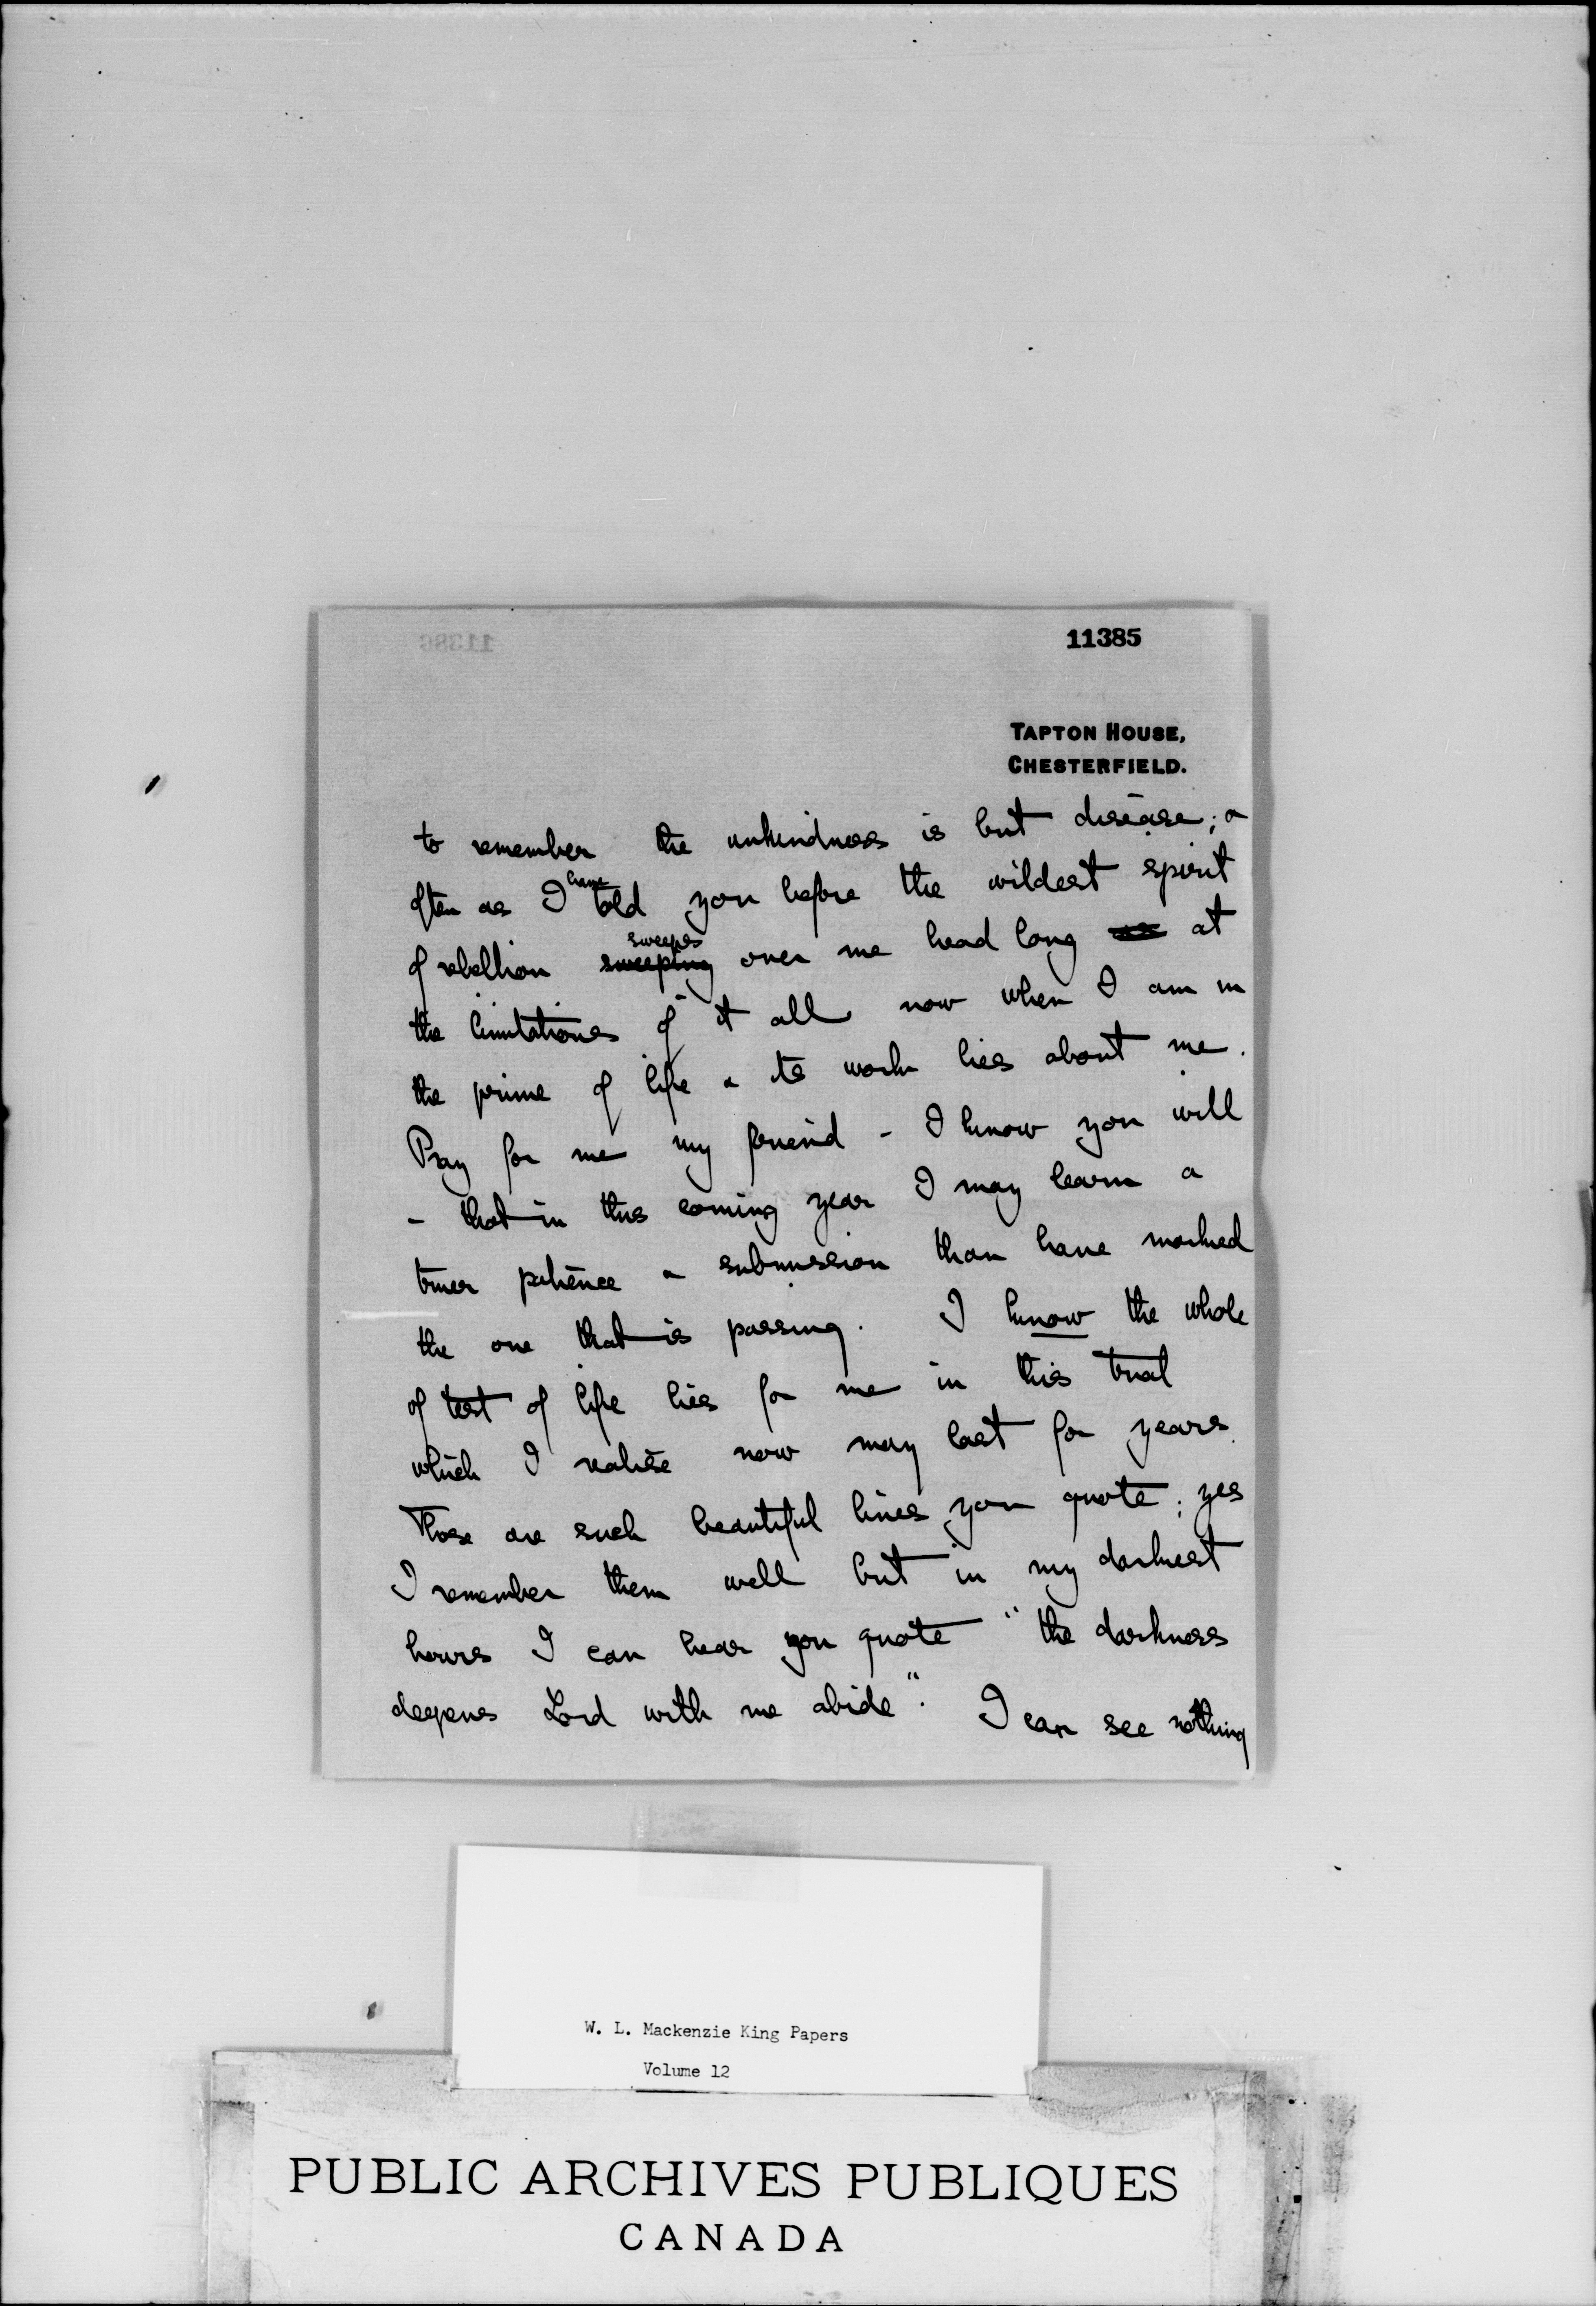 11385
TAPTON HOUSE,
CHESTERFIELD.
to remember the unkindness is but disease; &
often as I have told you before the wildest spirit
of rebellion sweeping sweeps over me head long at
the limitations of it all now when I am in
the prime of life & its work lies about me.
Pray for me my friend - I know you will
- that in this coming year I may learn a
truer patience & submission than have marked
the one that is passing. I know the whole
of test of life lies for me in this trial
which I realise now may last for years.
Those are such beautiful lines you quote; yes
I remember them well but in my darkest
hours I can hear you quote "the darkness
deepens Lord with me abide". I can see nothing
W. L. Mackenzie King Papers
Volume 12
PUBLIC ARCHIVES PUBLIQUES
CANADA